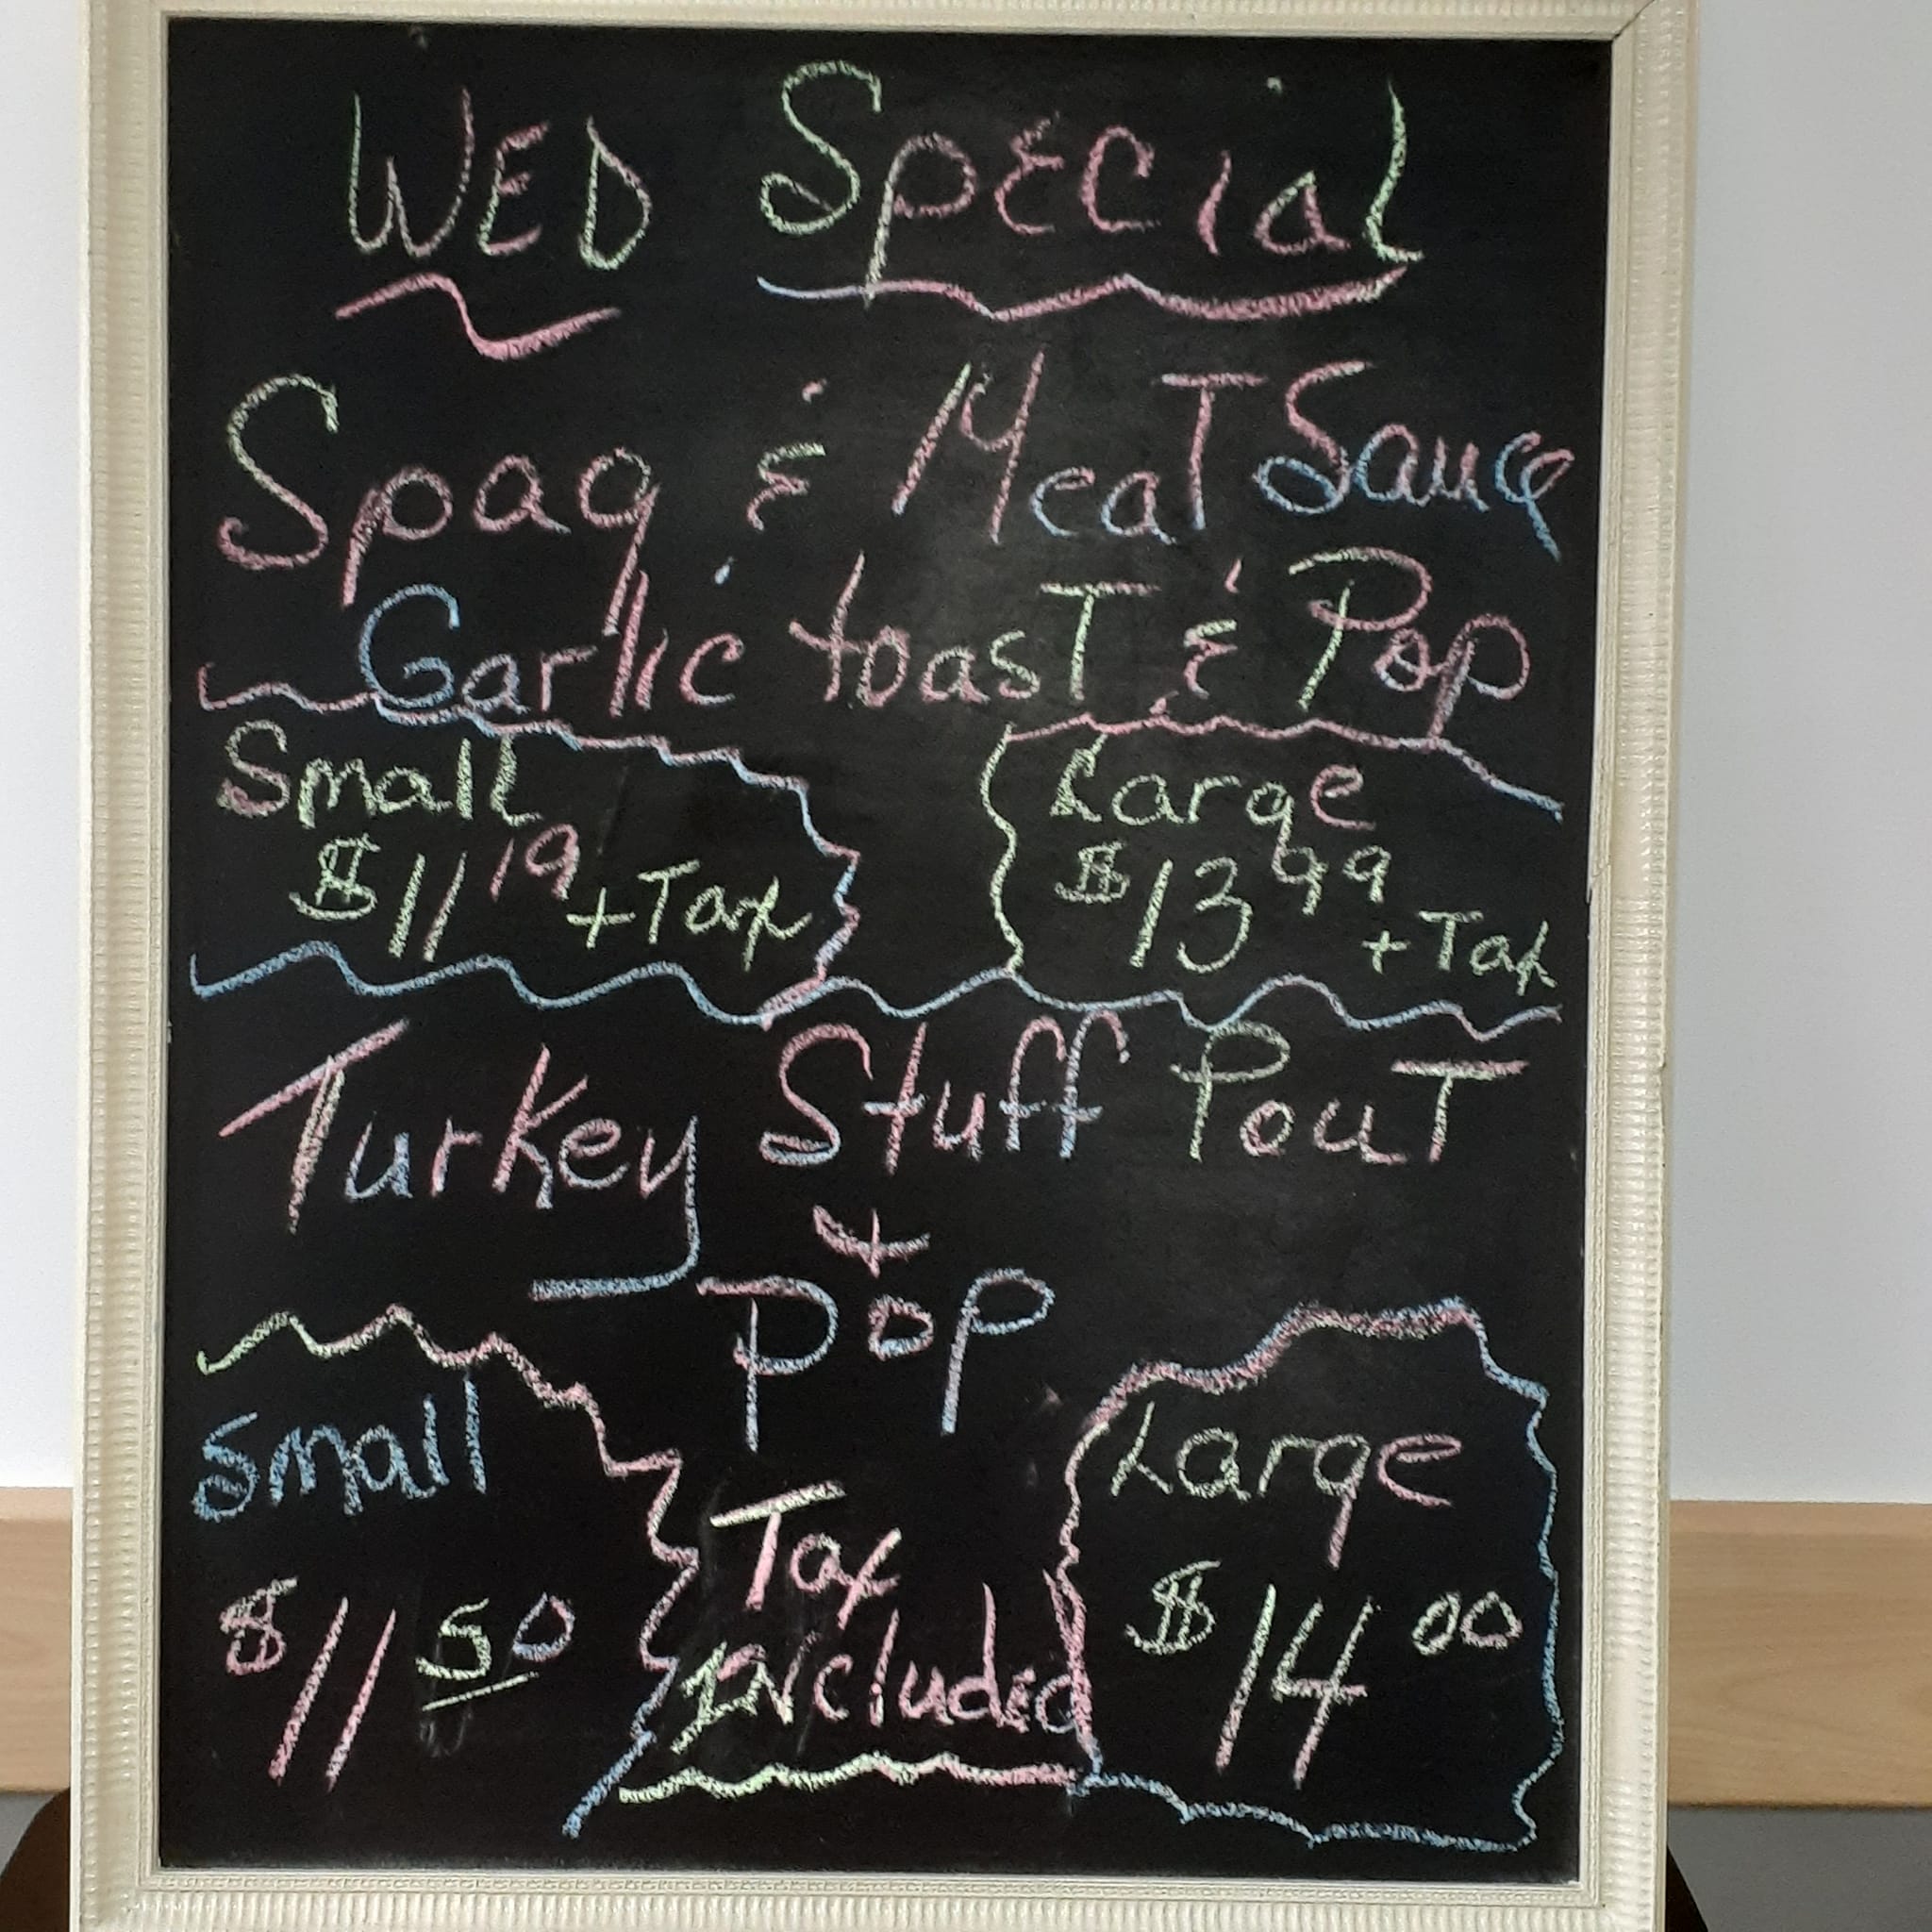 WED Special
Spag & Meat Sauce
Garlic toast & Pop
Small
$11 19 + Tax
Large
$13 99 + Tax
Turkey Stuff Pout
+
Pop
Small
$11 50
Tax
included
Large
$14 00